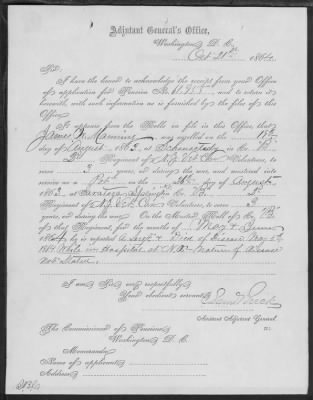 Adjutant General's Office,
Washington, D. C.
Oct 21st, 1864.
Sir:
I have the honor to acknowledge the receipt from your Office
of application for Pension No. and to return it
herewith, with such information as is furnished by the files of this
Office.
It appears from the Rolls on file in this Office, that
James Manning was enrolled on the
day of August, 1862, at Schenectady in Co.
Regiment of N.Y. Volunteers, to
serve 3 years, or during the war, and mustered into
service as a Pvt. on the day of August,
1862, at Saratoga Springs in Co.
Regiment of N.Y. Volunteers, to serve 3
years, or during the war. On the Muster Roll of Co.
of that Regiment, for the months of May & June
1864, he is reported
1864 While in Hospital at Nature of disease
not stated.
I am, Sir, very respectfully,
Your obedient servant,
Assistant Adjutant General.
The Commissioner of Pensions,
Washington, D. C.
Memoranda:
Name of applicant,
Address,